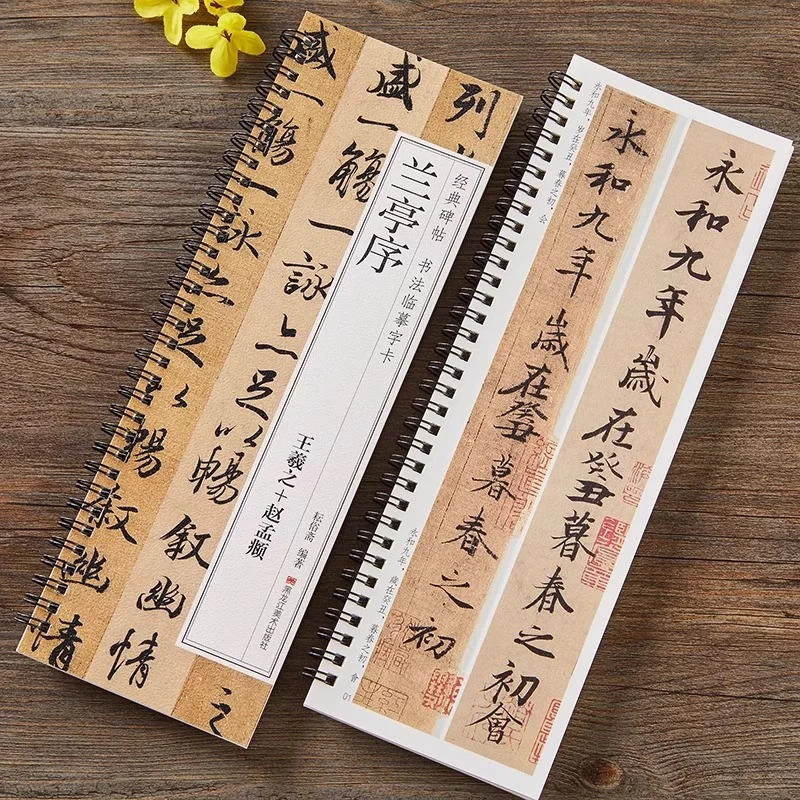 列
盛一觴一詠亦足以暢叙幽情
盛一觴一詠亦足以暢叙幽情
之
经典碑帖 书法临摹字卡
兰亭序
王羲之+赵孟頫
耘俗斋 编著
黑龙江美术出版社
永和九年，岁在癸丑，暮春之初，会
永和九年歲在癸丑暮春之初會
永和九年歲在癸丑暮春之初
永和九年，歲在癸丑，暮春之初，會
01